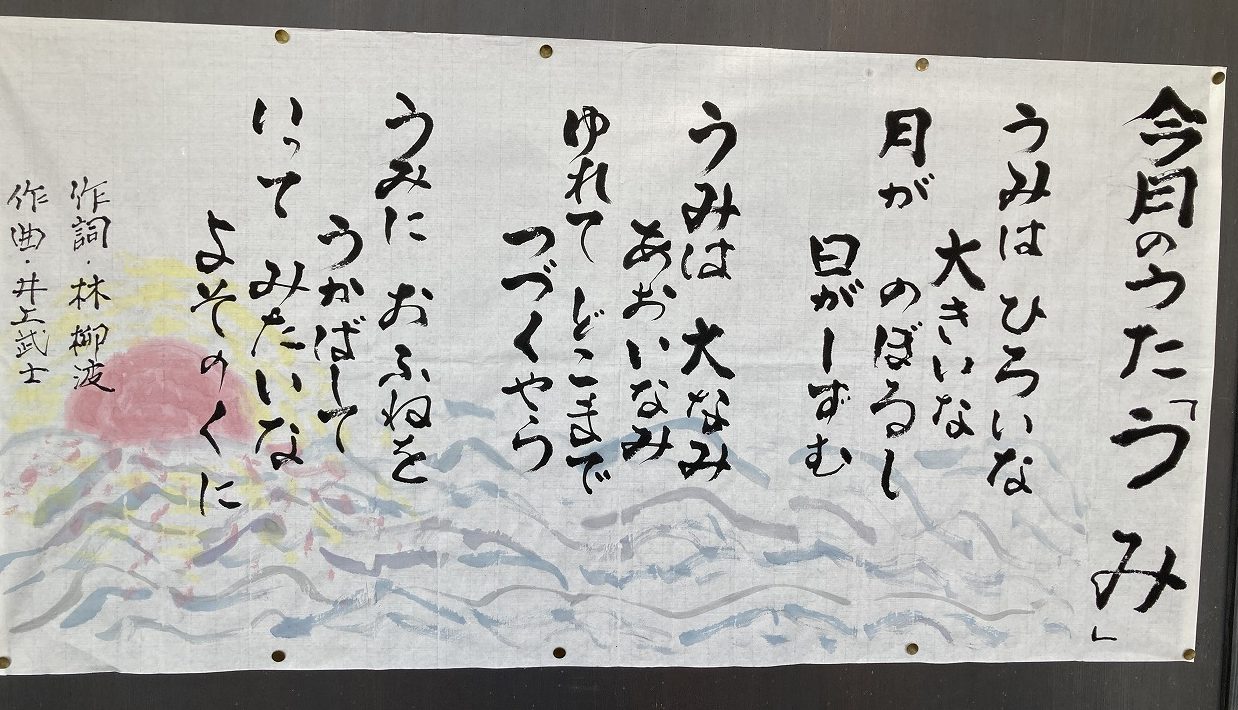 今月のうた「うみ」
うみは ひろいな
大きいな
月が のぼるし
日がしずむ
うみは 大なみ
あおいなみ
ゆれて どこまで
つづくやら
うみに おふねを
うかばして
いって みたいな
よそのくに
作詞・林柳波
作曲・井上武士